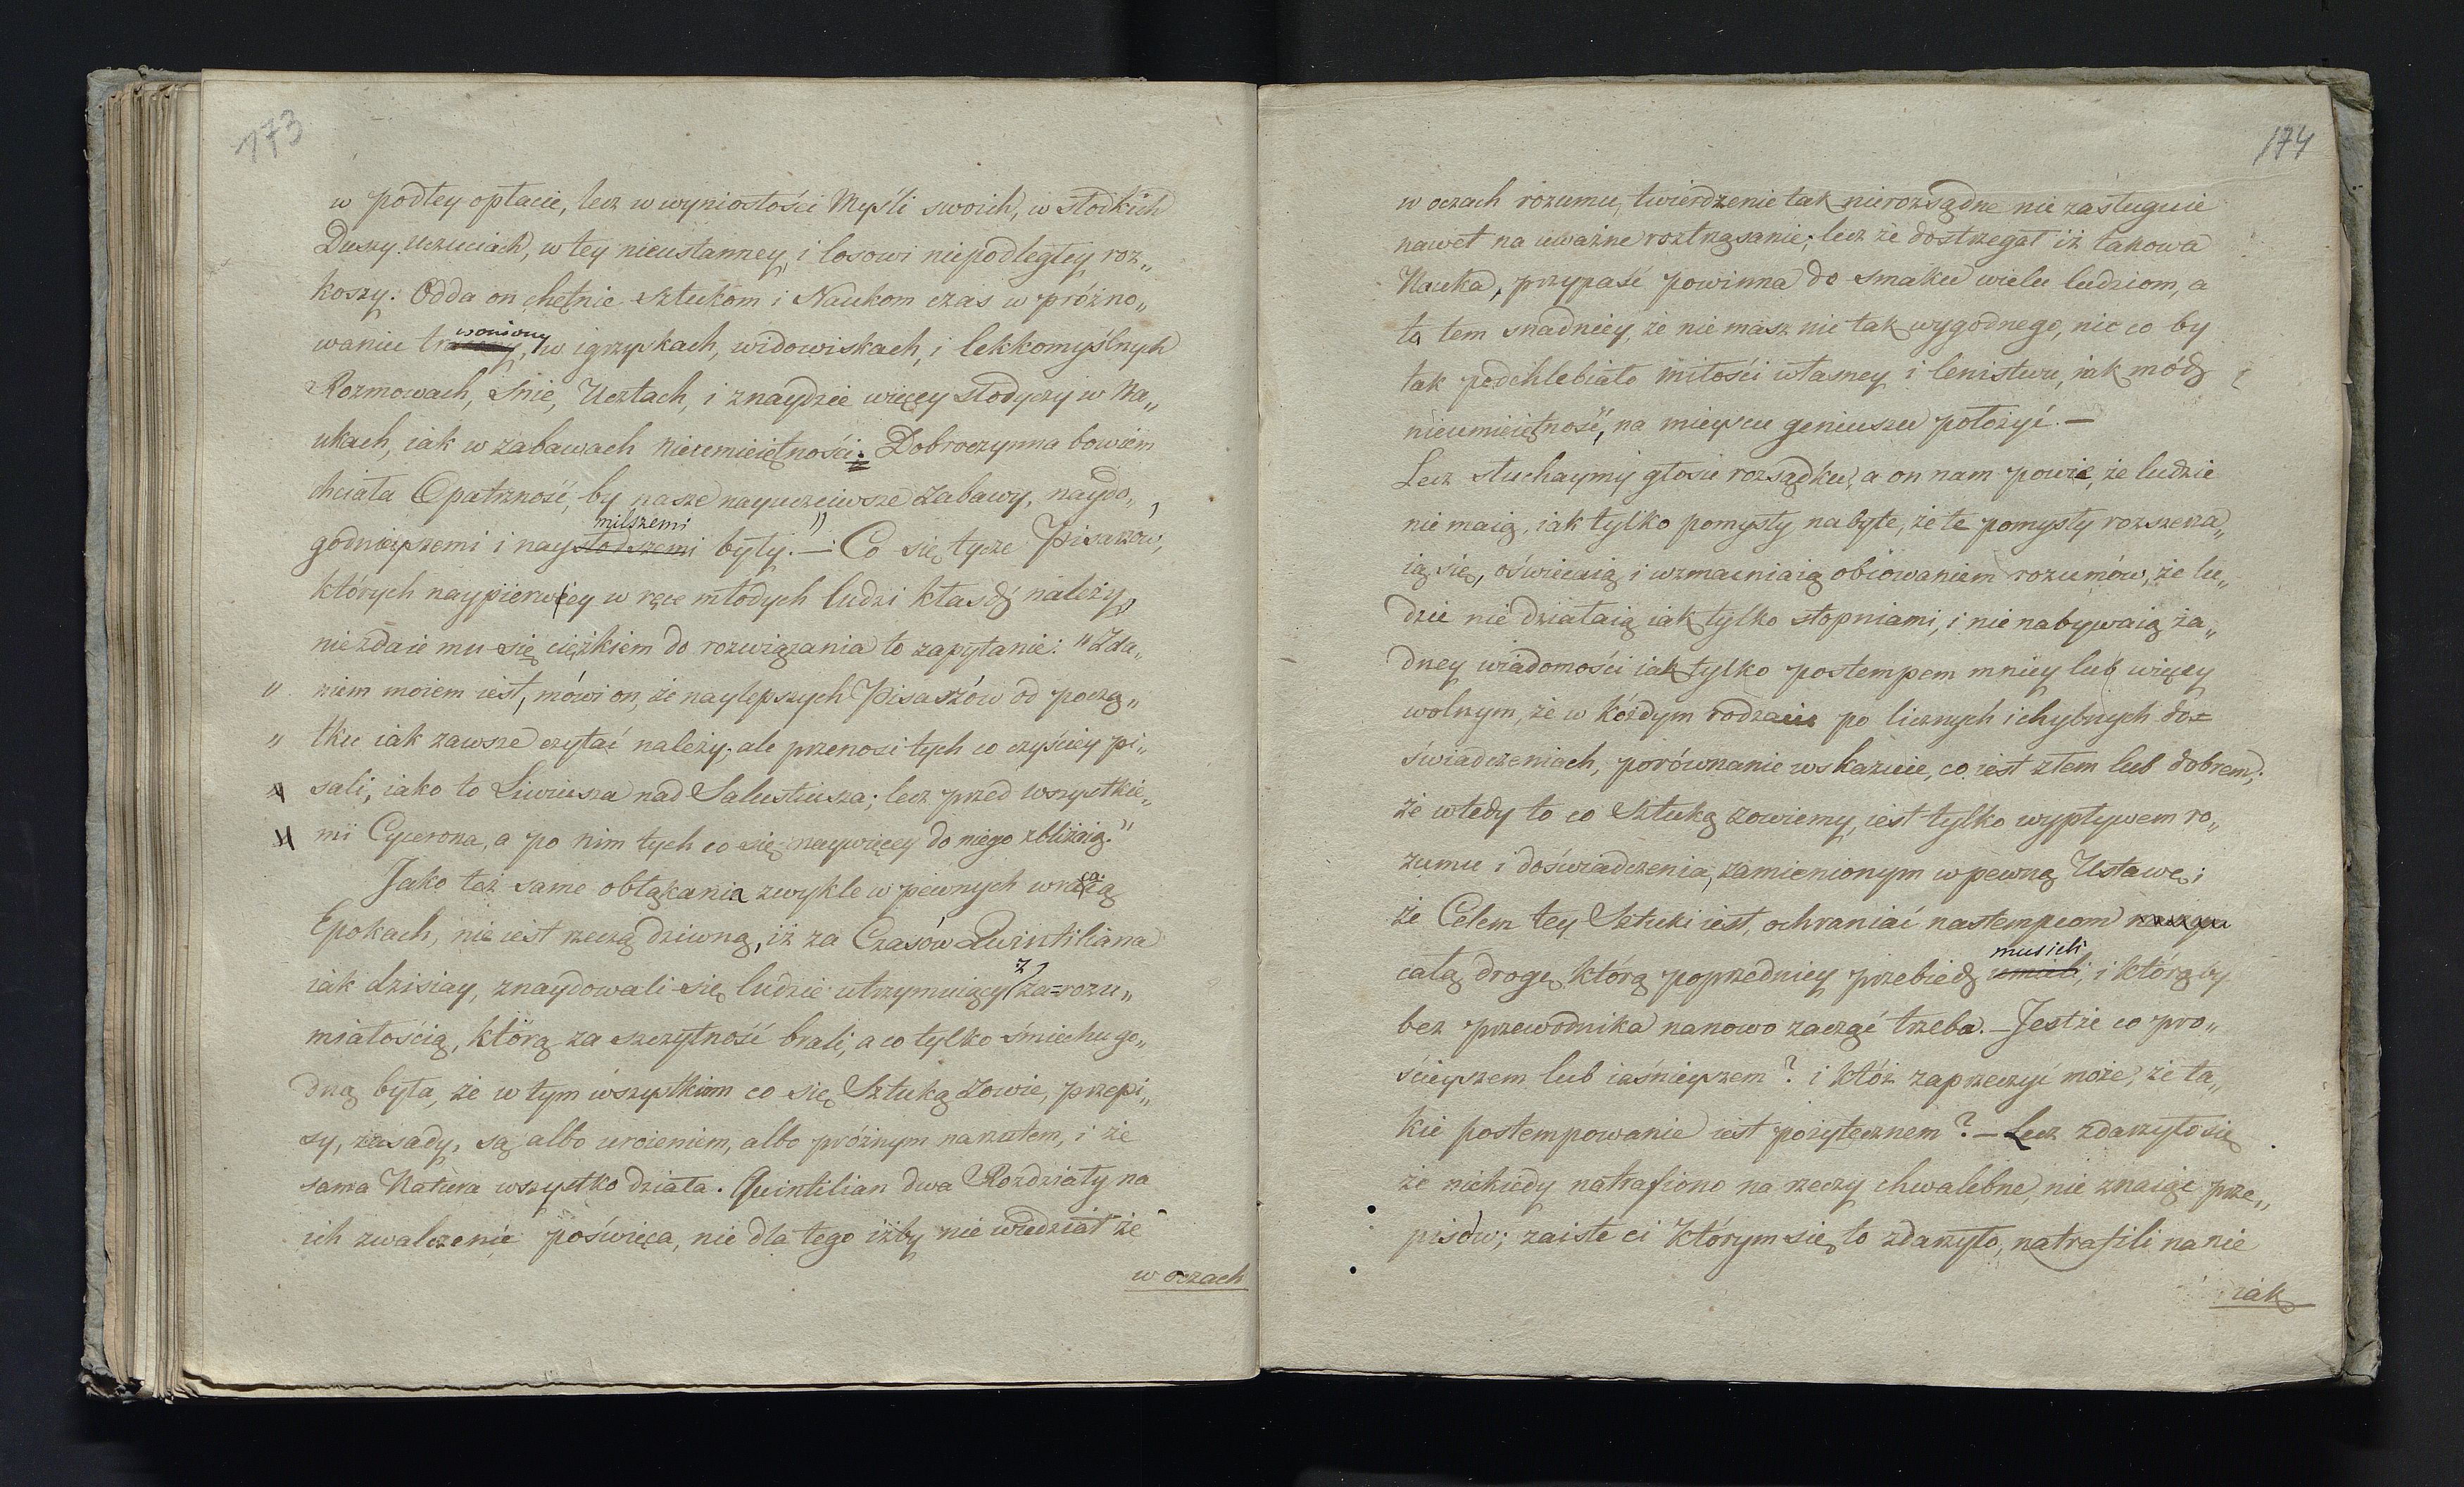 173
w podłey opłacie, lecz w wyniosłości Myśli swoich, w słodkich
Duszy uczuciach, w tey nieustanney, i losowi niepodległey roz„
koszy. Odda on chętnie Sztukom i Naukom czas w próżno„
woniony
waniu tra, w igrzyskach, widowiskach, i lekkomyślnych
Rozmowach, Snie, Ucztach, i znaydzie więcey słodyczy w Na„
ukach, iak w zabawach nieumieiętności. Dobroczynna bowiem
chciała Opatrzność, by nasze nayuczciwsze Zabawy, naydo„
milszemi
godnieyszemi i naysłodszemi były." —: Co się tycze Pisarzow,
których naypierwey w ręce młódych ludzi kłaśdź należy,
niezdaie mu się ciężkiem do rozwiązania to zapytanie: "Zda„
" niem moiem iest, mówi on, że naylepszych Pisarzów od począ„
" tku iak zawsze czytać należy; ale przenosi tych co czyściey pi„
" sali, iako to Liwiusza nad Salustiusza; lecz przed wszystkie„
" mi Cycerona, a po nim tych co się naywięcey do niego zbliżaią."
Jako też same obłąkania zwykle w pewnych wracaią
Epokach, nie iest rzeczą dziwną, iż za Czasów Quintiliana
z
iak dzisiay, znaydowali się ludzie utrzymuiący za=rozu„
miałością, którą za szczytność brali, a co tylko śmiechu go„
dną była, że w tym wszystkiem co się Sztuką zowie, przepi„
sy, zasady, są albo uroieniem, albo próżnym narzutem, i że
sama Natura wszystko działa. Quintilian dwa Rozdziały na
ich zwalczenie poświęca, nie dla tego iżby nie wiedział że
w oczach
174
w oczach rozumu, twierdzenie tak nierozsądne nie zasługuie
nawet na uważne roztrząsanie; lecz że dostrzegał iż takowa
Nauka, przypaść powinna do smaku wielu ludziom, a
to tem snadniey, że nie masz nic tak wygodnego, nic co by
tak podchlebiało miłości własney i lenistwu, iak módz
nieumieiętność, na mieyscu geniuszu położyć. —
Lecz słuchaymy głosu rozsądku, a on nam powie, że ludzie
nie maią, iak tylko pomysły nabyte, że te pomysły rozszerza„
ią się, oświecaią i wzmacniaią obcowaniem rozumów, że lu„
dzie nie działaią iak tylko stopniami, i nie nabywaią ża„
dney wiadomości iak tylko postempem mniey lub więcey
wolnym, że w każdym rodzaiu po licznych i chybnych do=
świadczeniach, porównanie wskazuie, co iest złem lub dobrem;
że wtedy to co Sztuką zowiemy, iest tylko wypływem ro„
zumu i doświadczenia, zamienionym w pewną Ustawę;
że Celem tey Sztuki iest, ochraniać nastempcom naszym
musieli
całą drogę, którą poprzedniey przebiedz umieli, i którąby
bez przewodnika nanowo zacząć trzeba. — Jestże co pro„
ścieyszem lub iaśnieyszem? i któż zaprzeczyć może, że ta„
kie postempowanie iest pożytecznem? — Lecz zdarzyło się
że niekiedy natrafiono na rzeczy chwalebne, nie znaiąc prze„
pisów; zaiste ci którym się to zdarzyło, natrafili na nie
iak